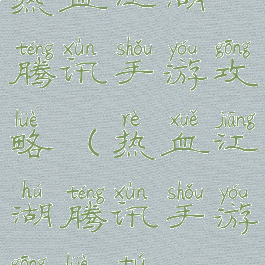 热血江湖
téng xùn shǒu yóu gōng
腾讯手游攻
lüè rè xuě jiāng
略（热血江
hú téng xùn shǒu yóu
湖腾讯手游
gōng lüè